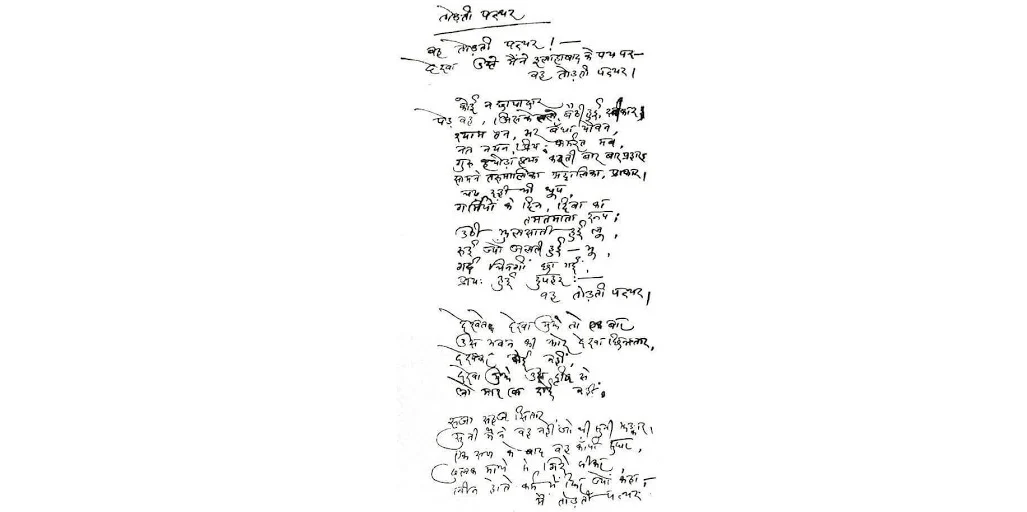 तोड़ती पत्थर
वह तोड़ती पत्थर!—
देखा उसे मैंने इलाहाबाद के पथ पर—
वह तोड़ती पत्थर।
कोई न छायादार
पेड़ वह, जिसके तले बैठी हुई, स्वीकार;
श्याम तन, भर बँधा यौवन,
नत नयन, प्रिय कर्मरत मन,
गुरु हथौड़ा हाथ करती बार बार प्रहार
सामने तरुमालिका अट्टालिका, प्राकार।
चढ़ रही थी धूप,
गर्मियों के दिन, दिवा का
तमतमाता रूप;
उठी झुलसाती हुई लू,
रुई ज्यों जलती हुई—भू,
गर्द चिनगी छा गई,
प्रायः हुई दुपहर:—
वह तोड़ती पत्थर।
देखते देखा मुझे तो एक बार
उस भवन की ओर देखा, छिन्नतार,
देखकर कोई नहीं,
देखा मुझे उस दृष्टि से
जो मार खा रोई नहीं,
सजा सहज सितार
सुनी मैंने वह नहीं जो थी सुनी झङ्कार।
एक क्षण के बाद वह काँपी सुघर,
ढुलक माथे से गिरे सीकर,
लीन होते कर्म में फिर ज्यों कहा—
मैं तोड़ती पत्थर